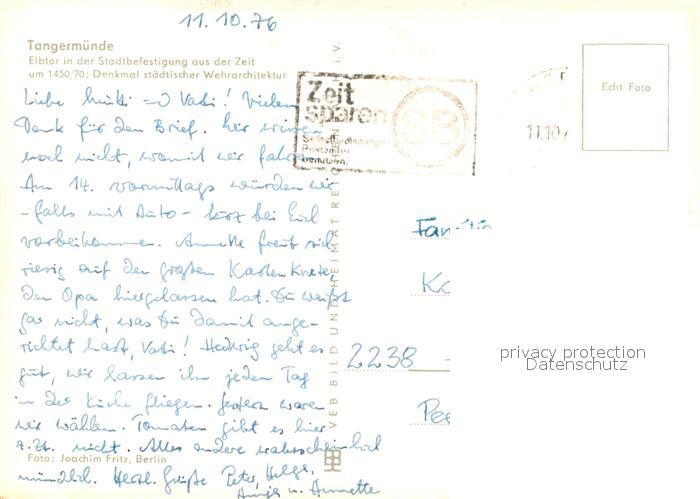 11.10.76
Tangermünde
Elbtor in der Stadtbefestigung aus der Zeit
um 1450/70; Denkmal städtischer Wehrarchitektur
Liebe Mutti u Vati! Vielen
Dank für den Brief. Wir wissen
noch nicht, womit wir fahren.
Am 14. vormittags würden wir
- falls mit Auto - kurz bei Euch
vorbeikommen. Annette freut sich
riesig auf den großen Kasten Knete,
den Opa hiergelassen hat. Du weißt
gar nicht, was Du damit ange-
richtet hast, Vati! Hedwig geht es
gut, wir lassen ihn jeden Tag
in der Küche fliegen. Gestern waren
wir wählen. Tomaten gibt es hier
z. Zt. nicht. Alles andere wahrscheinlich
mündlich. Herzl. Grüße Peter, Helga,
u. Annette
Foto: Joachim Fritz, Berlin
VEB BILD UND HEIMAT REICHENBACH i. V.
Zeit
sparen
SB
Selbstbedienungs-
Postämter
benutzen
11.10.7
Echt Foto
Fam
Ko
2238
Pee
privacy protection
Datenschutz